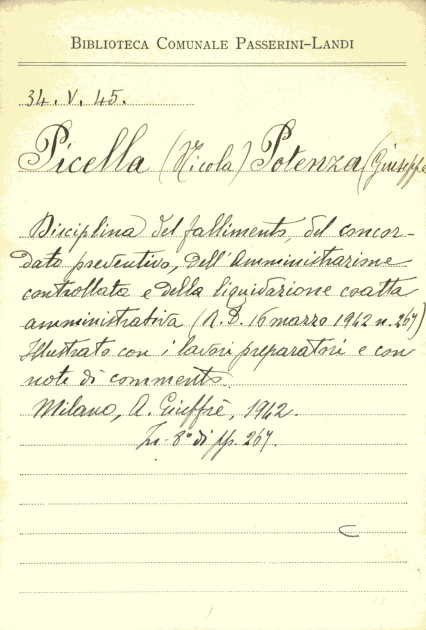 BIBLIOTECA COMUNALE PASSERINI-LANDI
34. V. 45.
Picella (Nicola) Potenza (Giuseppe
Disciplina del fallimento, del concor-
dato preventivo, dell'Amministrazione
controllata e della liquidazione coatta
amministrativa (R. D. 16 marzo 1942 n. 267)
Illustrato con i lavori preparatori e con
note di commento.
Milano, A. Giuffrè, 1942.
In-8° di pp. 267.